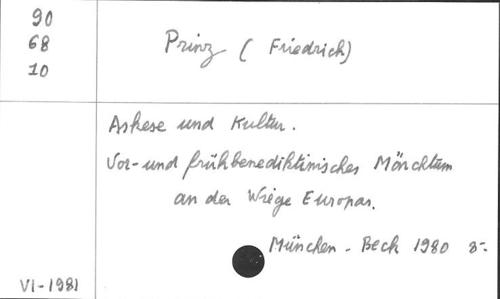 90
68
10
Prinz ( Friedrich)
Askese und Kultur.
Vor- und frühbenediktinisches Mönchtum
an der Wiege Europas.
München - Beck 1980 8-
VI-1981